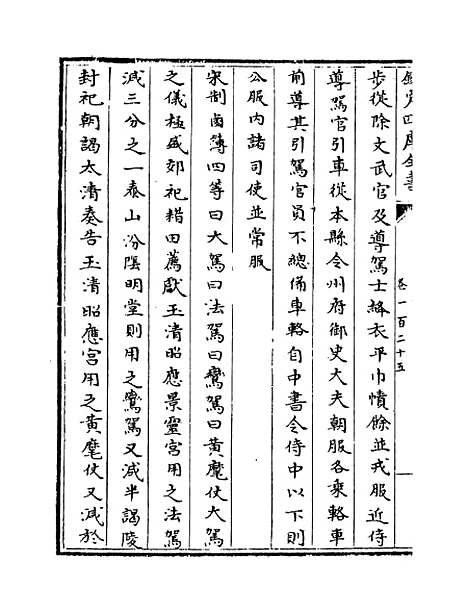 欽定四庫全書
卷一百二十五
步從除文武官及導駕士絳衣平巾幘餘並戎服近侍
導駕官引車從本縣令州府御史大夫朝服各乗輅車
前導其引駕官員不總備車輅自中書令侍中以下則
公服内諸司使並常服
宋制鹵簿四等曰大駕曰法駕曰鸞駕曰黄麾仗大駕
之儀極盛郊祀耤田薦獻玉清昭應景靈宫用之法駕
減三分之一泰山汾隂明堂則用之鸞駕又減半謁陵
封祀朝謁太清奏告玉清昭應宫用之黄麾仗又減於